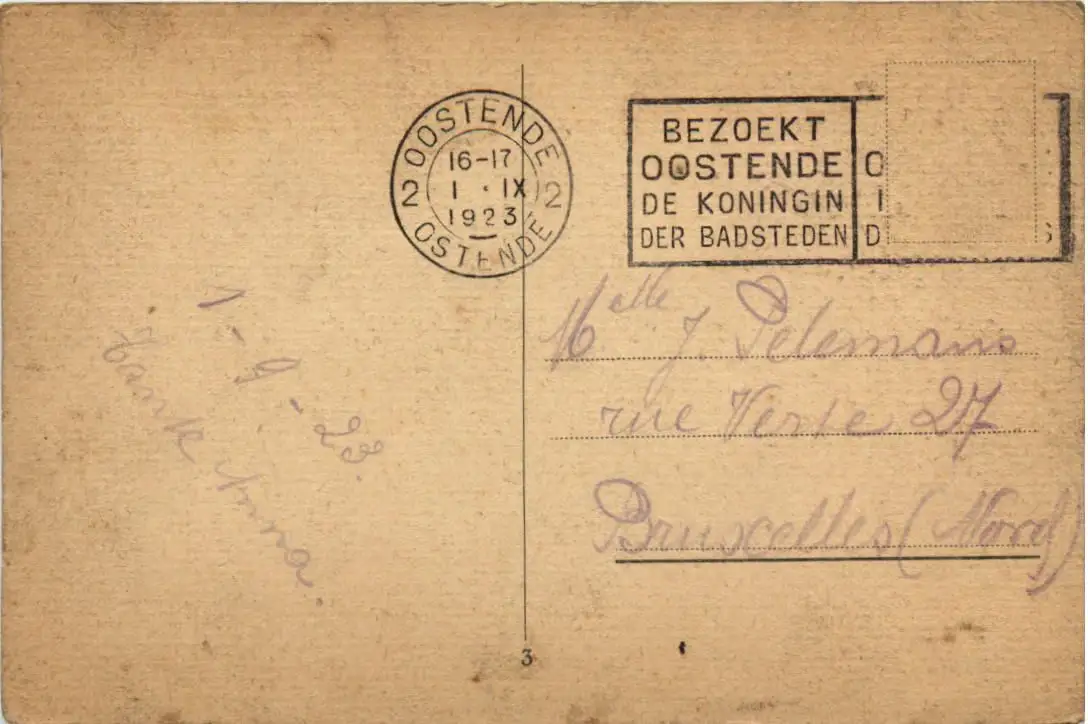 OOSTENDE
16-17
2 1 · IX 2
1923
OSTENDE
BEZOEKT
OOSTENDE O
DE KONINGIN
DER BADSTEDEN D S
1-9-23.
Tante Anna.
Melle J. Pelemans
rue Verte 27
Bruxelles (Nord)
3